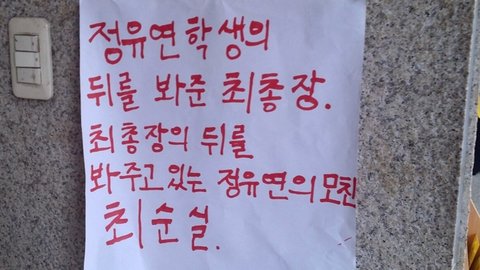 정유연학생의
뒤를 봐준 최총장.
최총장의 뒤를
봐주고있는 정유연의모친
최순실.